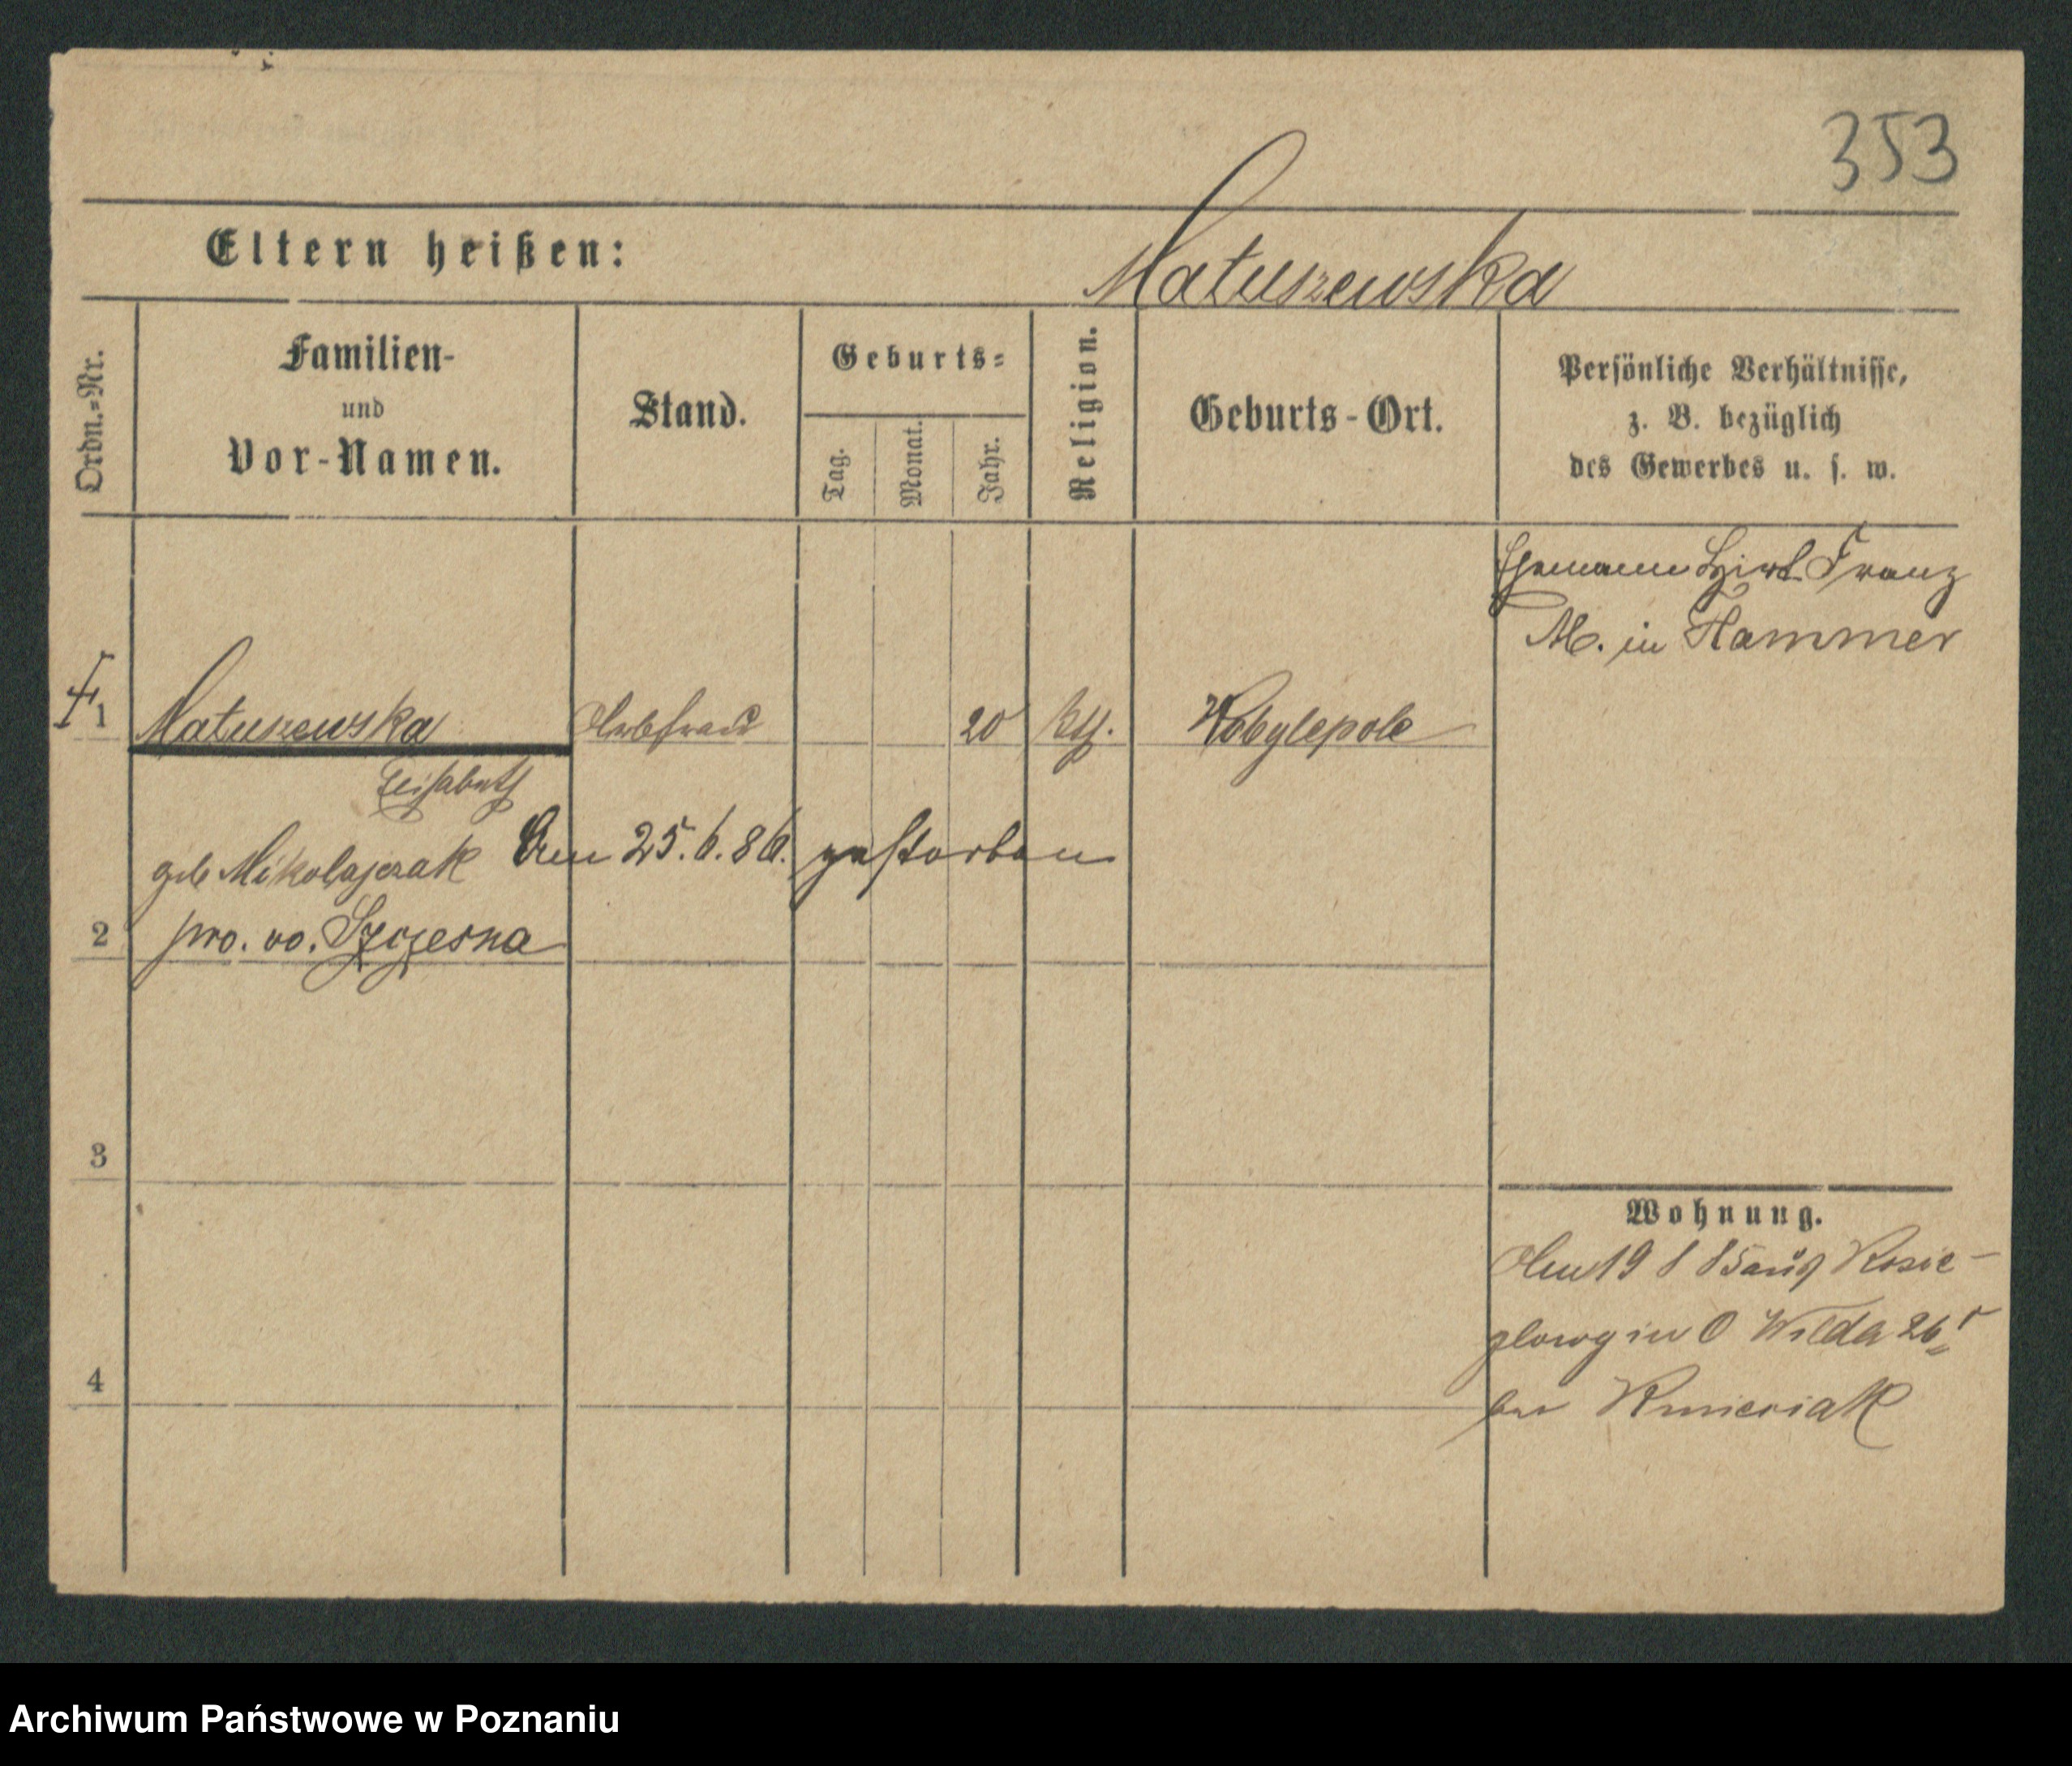 353
Eltern heißen:
Matuszewska
Ordn.-Nr.
Familien-
und
Vor-Namen.
Stand.
Geburts-
Tag.
Monat.
Jahr.
Religion.
Geburts-Ort.
Persönliche Verhältnisse,
z. B. bezüglich
des Gewerbes u. s. w.
Ehemann Hirt Franz
M. in Hammer
1
Matuszewska
Arbfrau
20
kth.
Kobylepole
Elisabeth
geb Mikolajczak
Am 25.6.86. gestorben
2
pro. vo. Szczesna
3
Wohnung.
Am 19 8 85 aus
in O Wilda 26
4
bei
Archiwum Państwowe w Poznaniu